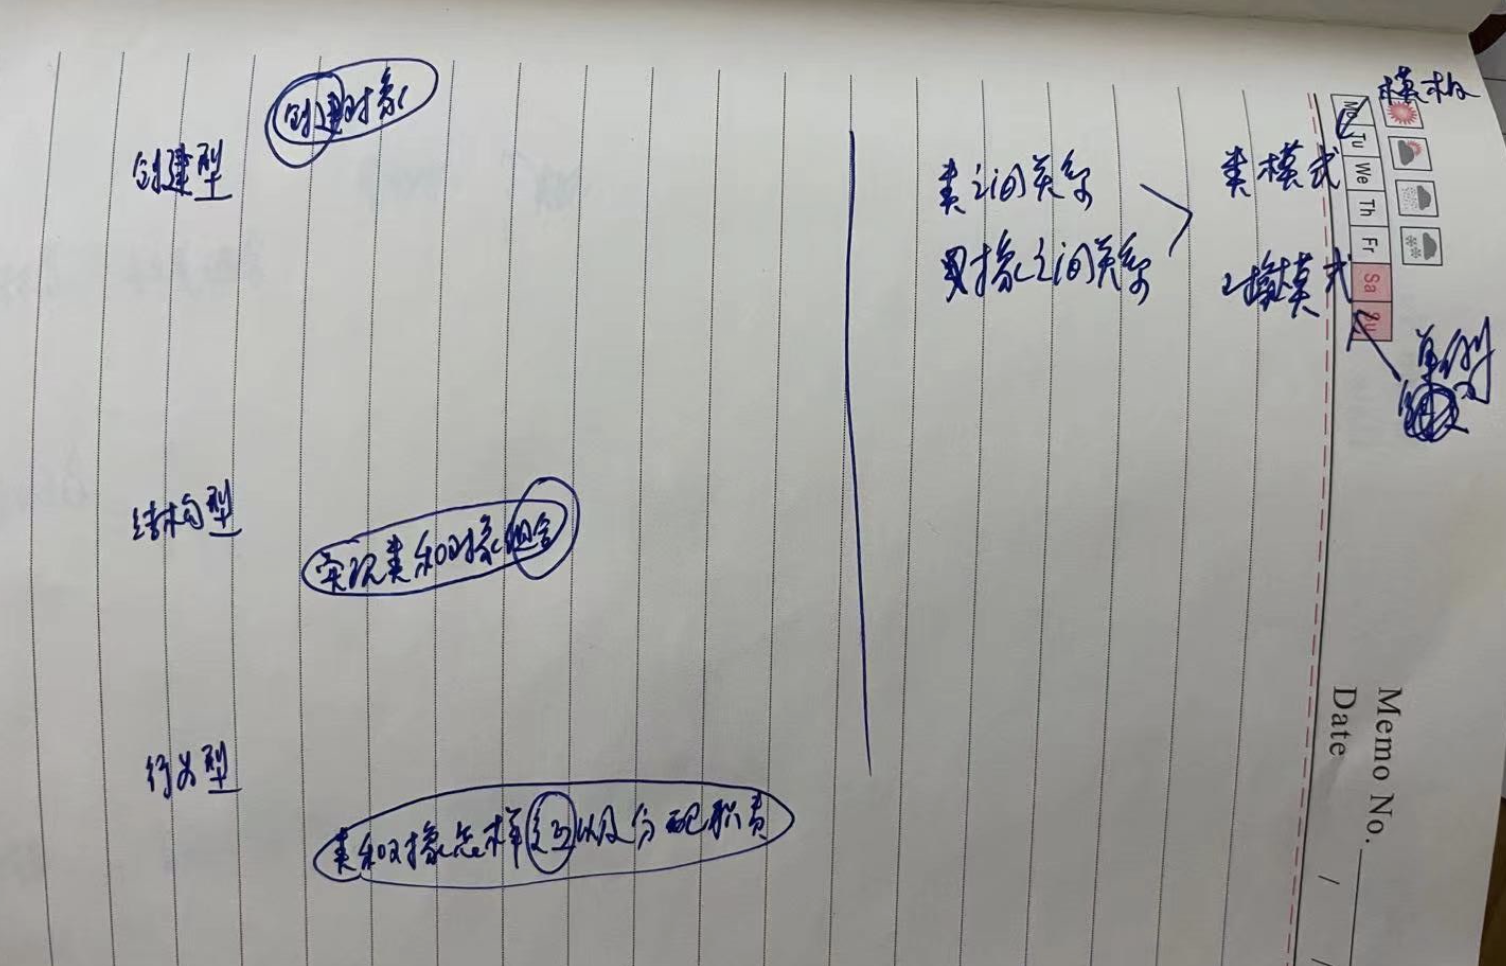 创建对象
创建型
结构型
实现类和对象组合
行为型
类和对象怎样交互以及分配职责
类之间关系
对象之间关系
类模式
对象模式
模板
单例
Mo Tu We Th Fr Sa Su
Memo No.
Date / /